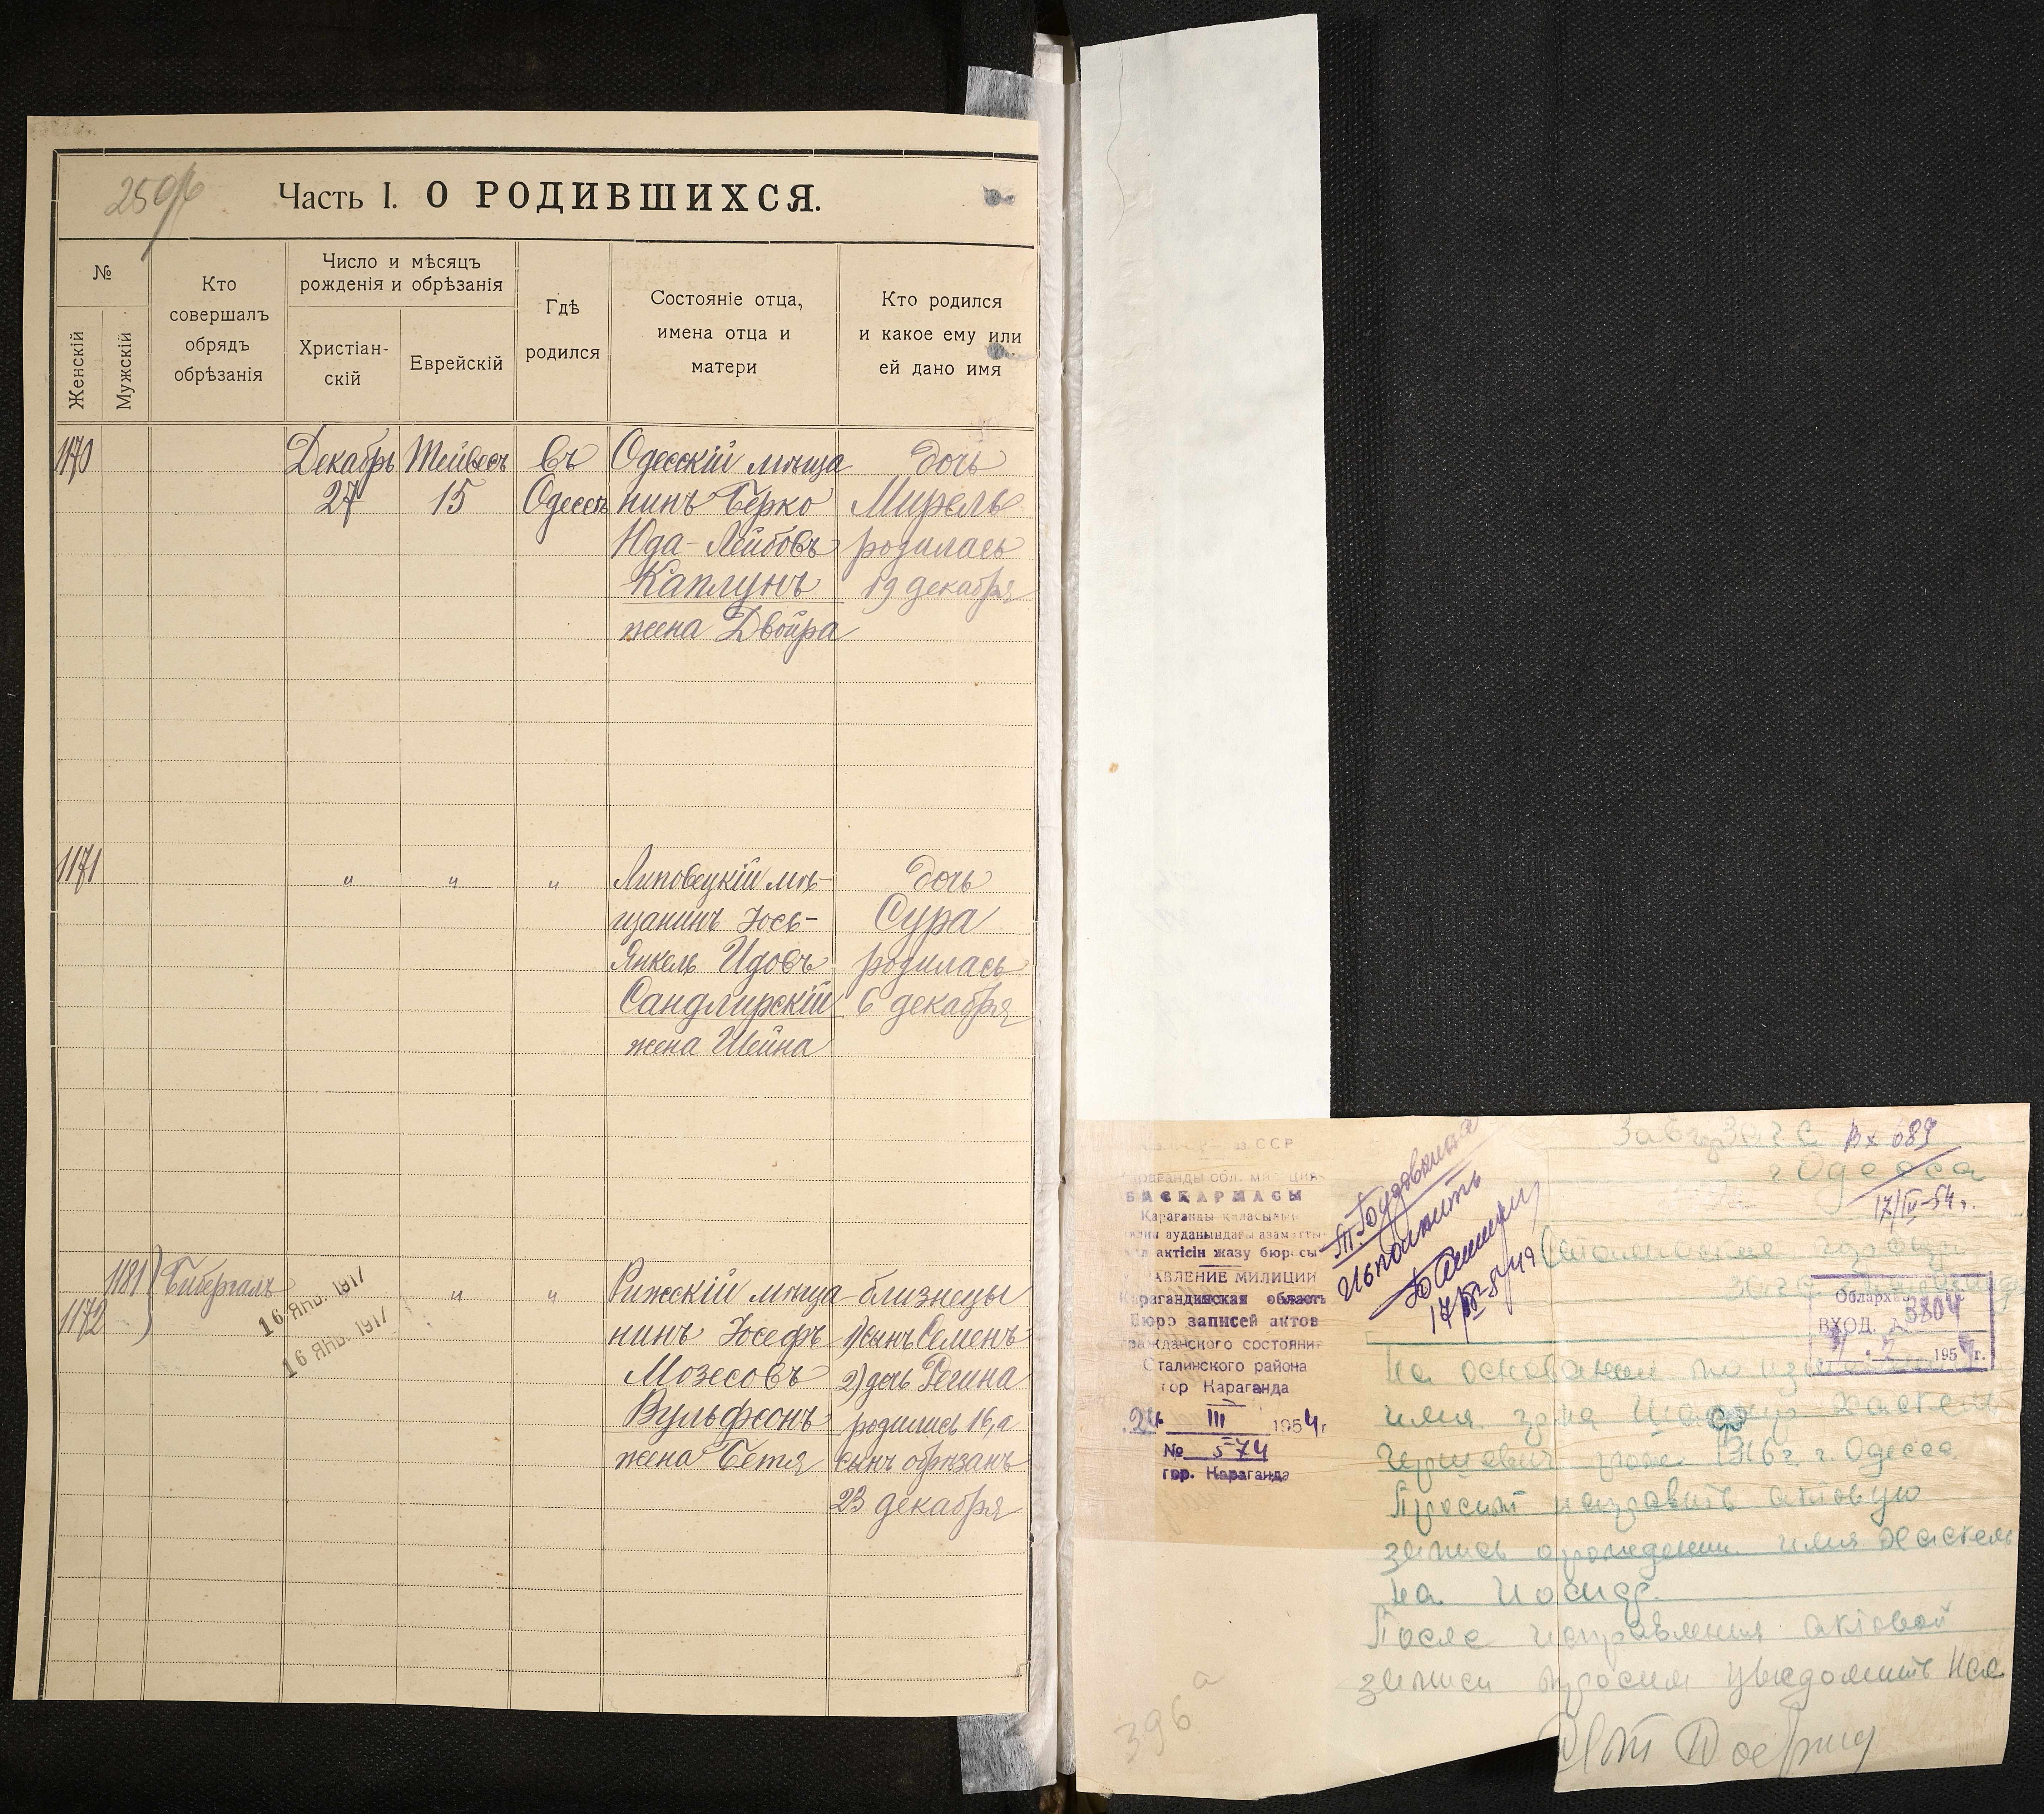 Часть I. О РОДИВШИХСЯ.
№
Женскій
Мужскій
Кто
совершалъ
обрядъ
обрѣзанія
Число и мѣсяцъ
рожденія и обрѣзанія
Христіан-
скій
Еврейскій
Гдѣ
родился
Состояніе отца,
имена отца и
матери
Кто родился
и какое ему или
ей дано имя
1170
Декабрь
27
Тейвесъ
15
Въ
Одессѣ
Одесскій мѣща
нинъ Берко
Юда-Лейбовъ
Каплунъ
жена Двойра
дочь
Мирель
родилась
19 декабря
1171
" " "
Липовецкій мѣ-
щанинъ Іось-
Янкель Идовъ
Сандлирскій
жена Шейна
дочь
Сура
родилась
6 декабря
1181
1172
Бибергалъ
16 ЯНВ. 1917
16 ЯНВ. 1917
" "
Рижскій мѣща
нинъ Іосефъ
Мозесовъ
Вульфсонъ
жена Бетя
близнецы
1) сынъ Семенъ
2) дочь Регина
родились 16, а
сынъ обрѣзанъ
23 декабря
ССР
Караганды обл. милиция
БАСҚАРМАСЫ
актісін жазу бюросы
УПРАВЛЕНИЕ МИЛИЦИИ
Карагандинская область
Бюро записей актов
гражданского состояния
Сталинского района
гор Караганда
24 III 1954 г
№ 574
гор. Караганда
Исполнить
Зав гор ЗАГС
Вх 689
г Одесса
17/IV-54 г.
Облархив
ВХОД. 3804
195 г.
На основании
имя
1916 г г. Одесса.
Просит исправить актовую
запись о рождении имя Хаскель
на Иосиф.
После исправления актовой
записи просим уведомить нас
396 а